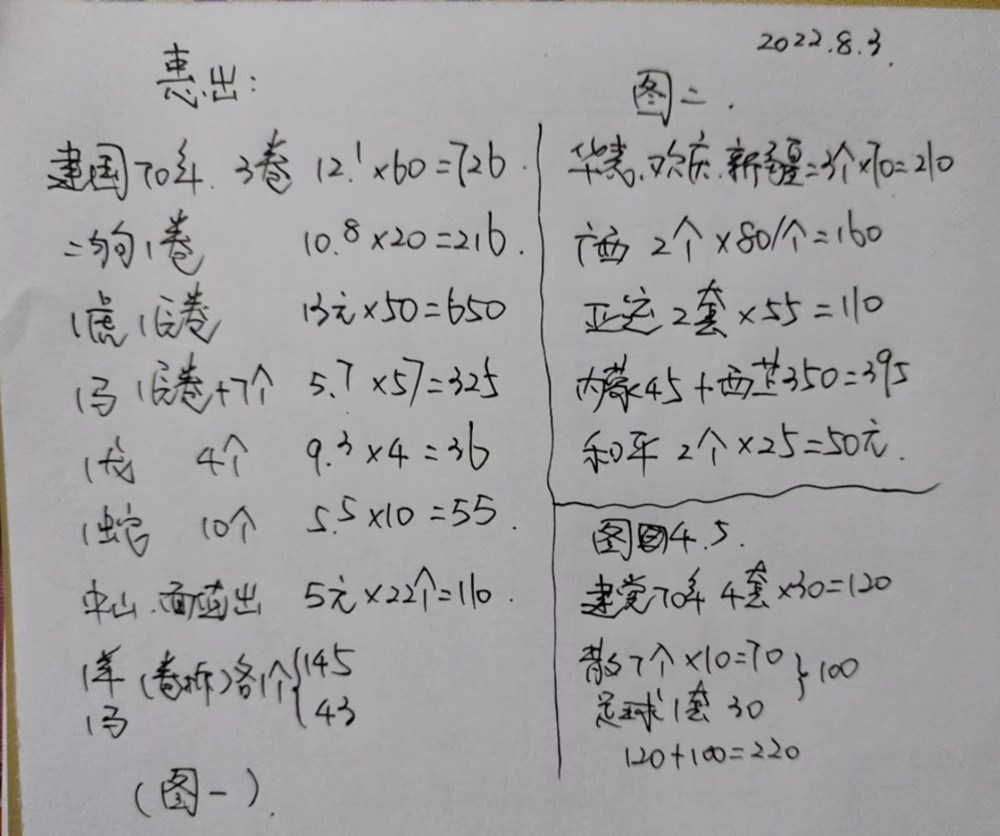 2022.8.3.
惠出:
建国70年. 3卷 12.1×60=726.
二狗1卷 10.8×20=216.
1虎1后卷 13元×50=650
1马1后卷+7个 5.7×57=325
1龙 4个 9.3×4=36
1蛇 10个 5.5×10=55.
中山.面值出 5元×22个=110.
1羊(卷拆)各1个{145
1马 43
(图一).
图二.
华老.欢庆.新疆=3个×70=210
广西 2个×80/个=160
亚运2套×55=110
内蒙45+西芷350=395
和平 2个×25=50元.
图4.5.
建党70年4套×30=120
散7个×10=70 }100
足球1套 30
120+100=220